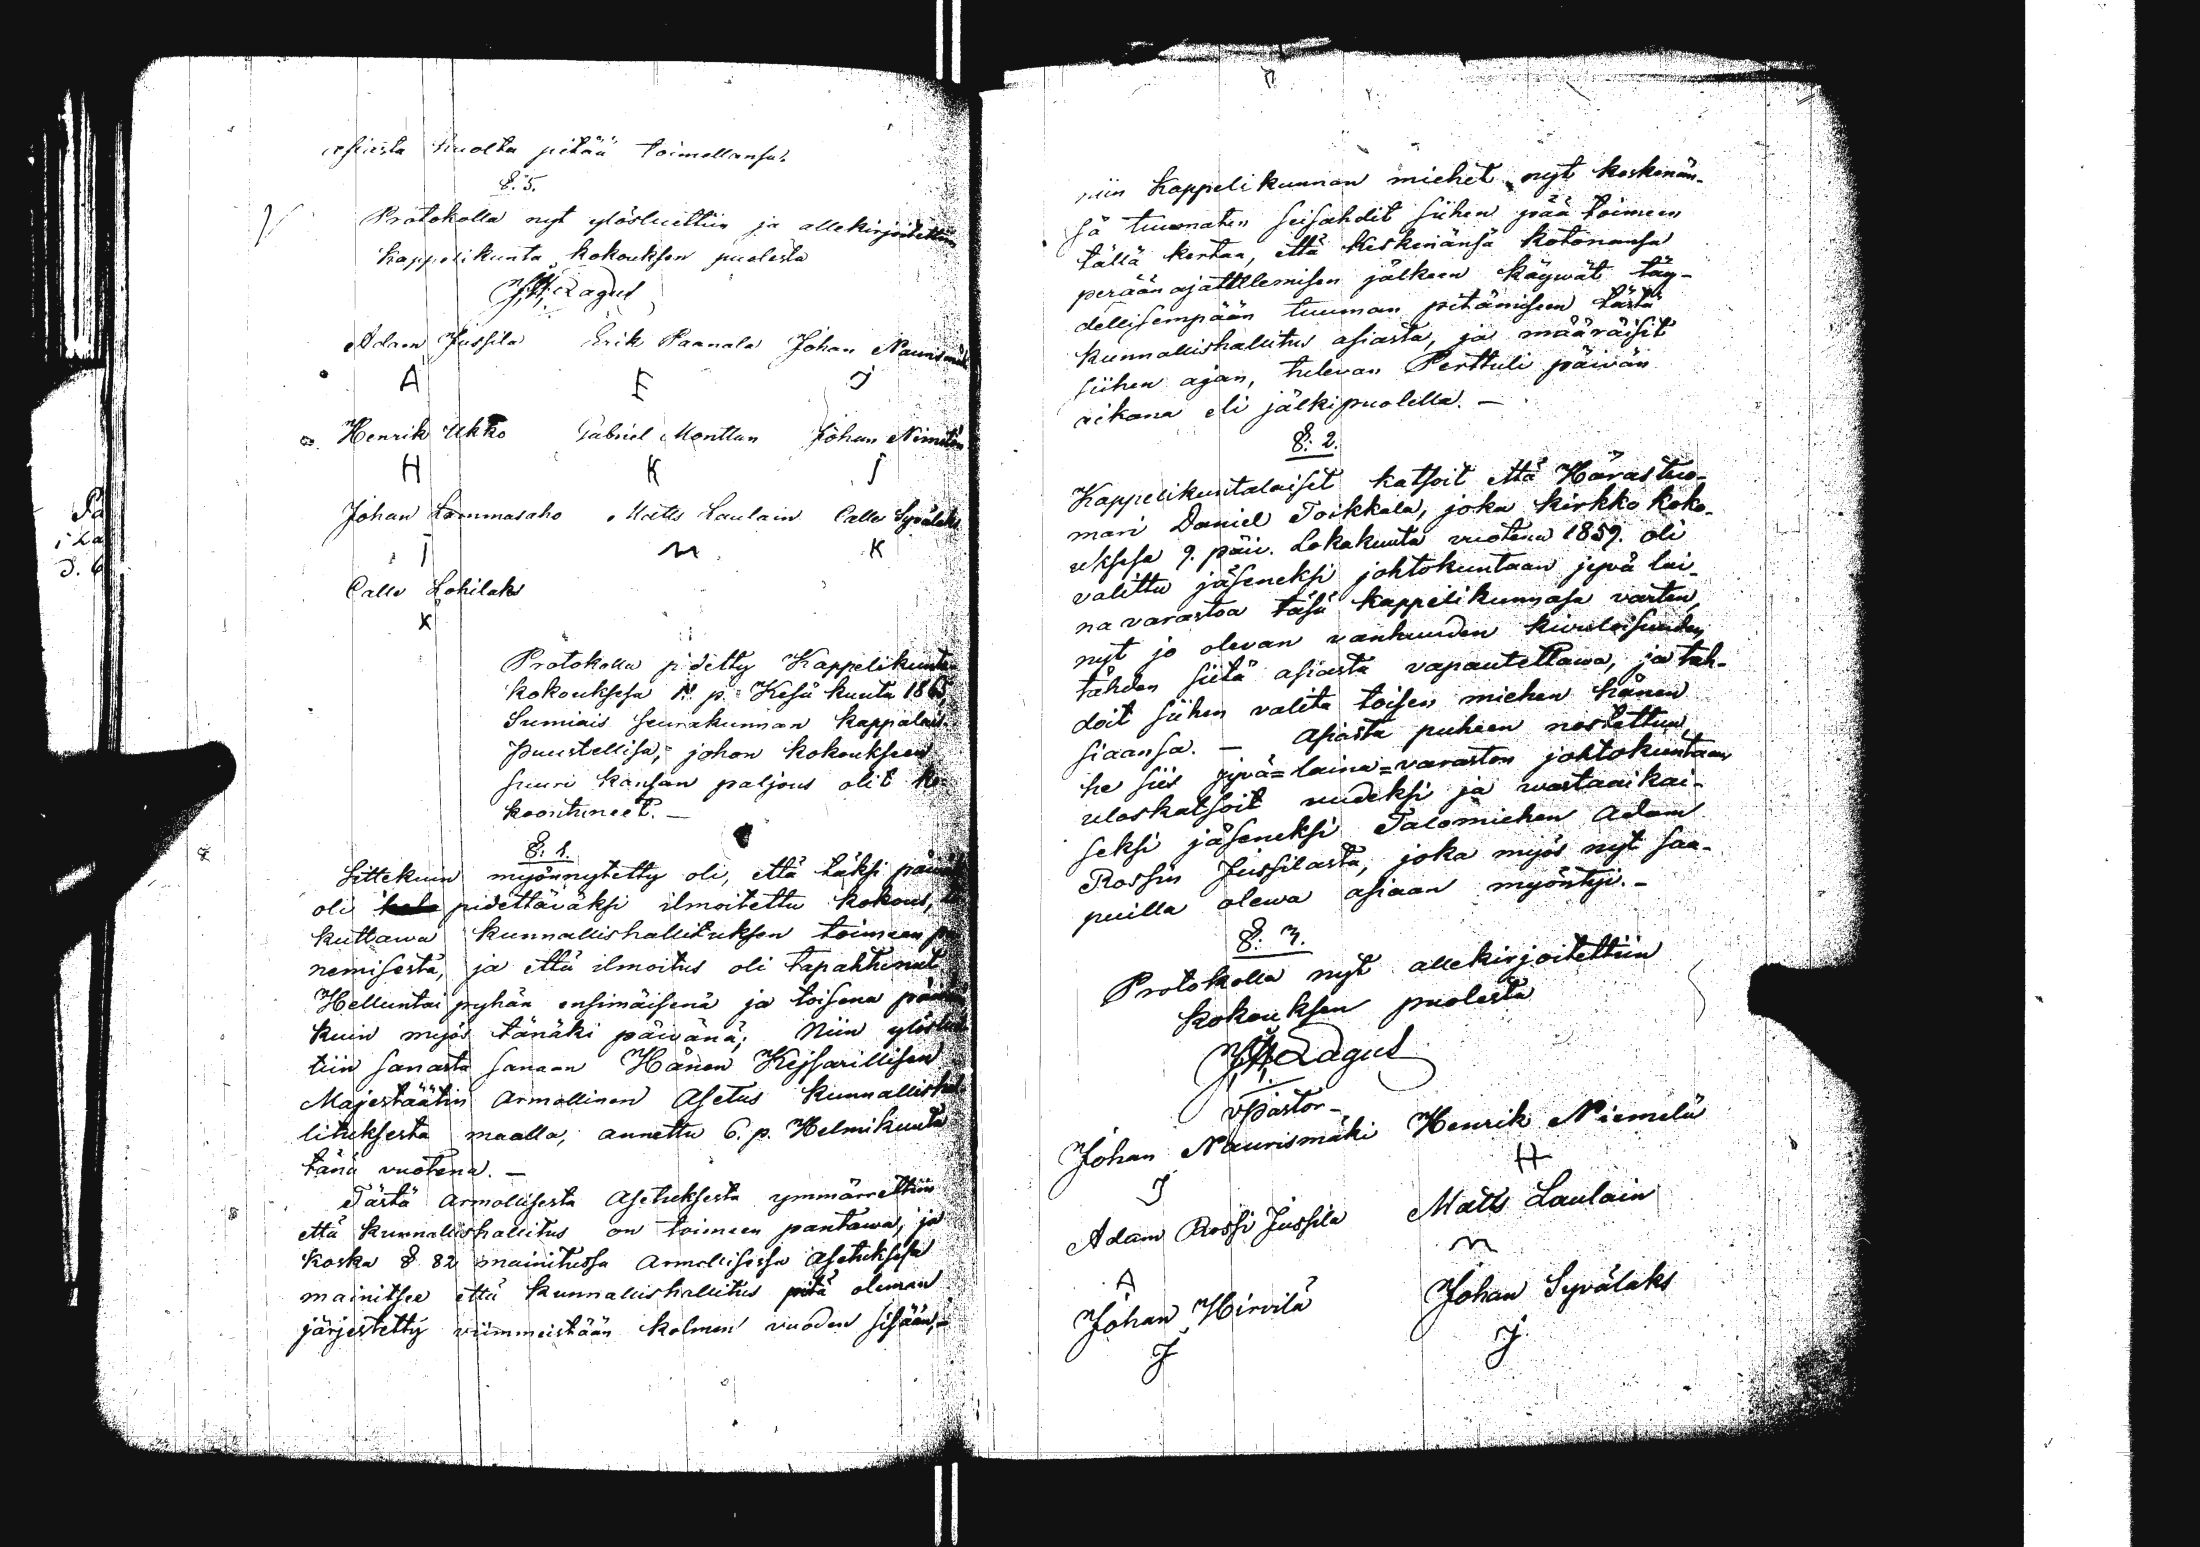 asiasta huolta pitää toimellansa.
§. 5.
Protokolla nyt ylösluettiin ja allekirjoitettiin
Kappelikunta kokouksen puolesta
Lagus
Adam Jussila Erik Paanala Johan Naurismäki
A E J
Henrik Ukko Gabriel Monttan Johan
H K J
Johan Lammasaho Matts Laulain Calle Syväläks
J M K
Calle Lohilaks
K
Protokolla pidetty Kappelikunta
kokouksesa p. Kesä kuuta 1865
Sumiais seurakunnan kappalais
puustellisa, johon kokoukseen
suuri kansan paljous olit ko-
koontuneet. —
§: 1.
Sittekuin myönnytetty oli, että täksi päiväksi
oli pidettäväksi ilmoitettu kokous,
kuttawa kunnallishallituksen toimeen pa
nemisesta, ja että ilmoitus oli tapahtunut
Helluntai pyhän ensimäisenä ja toisena päivänä
kuin myös tänäki päivänä; Niin ylöslu
tiin sanasta sanaan Hänen Kejsarillisen
Majestäätin Armollinen Asetus kunnallishal-
lituksesta maalla, annettu 6. p. Helmikuuta
tänä vuotena. —
Tästä Armollisesta Asetuksesta ymmärrettiin
että kunnallishallitus on toimeen pantawa, ja
koska § 82 mainitussa Armollisessa Asetuksesa
mainitsee että kunnallishallitus pitä oleman
järjestetty viimmeistään kolmen vuoden sisään,
niin Kappelikunnan miehet nyt keskenän-
sä tuumaten seisahdit siihen pää toimeen
tällä kertaa, että keskenänsä kotonansa
perään ajattelemisen jälkeen käywät täy-
dellisempään tuuman pitämiseen tästä
kunnallishallitus asiasta, ja määräisit
siihen ajan, tulevan Perttuli päivän
aikana eli jälkipuolella. —
§: 2.
Kappelikuntalaiset katsoit että Härastuo-
mari Daniel Toikkala, joka kirkko koko-
uksesa 9. päiv. Lokakuuta vuotena 1859. oli
valittu jäseneksi johtokuntaan jyvä lai-
na varastoa täsä kappelikunnasa varten,
nyt jo olevan vanhuuden kivuloisuuden
tähden siitä asiasta vapautettawa, ja tah-
doit siihen valita toisen miehen hänen
siaansa. — Asiasta puheen nostettua
he siis jyvä=laina=varaston johtokuntaan
uloskatsoit uudeksi ja vastaaikai-
seksi jäseneksi Talomiehen Adam
Rossin Jussilasta, joka myös nyt saa-
puilla olewa asiaan myöntyi. —
§: 3.
Protokolla nyt allekirjoitettiin
kokouksen puolesta
Lagus
v.pastor.
Johan Naurismäki Henrik Niemelä
J H
Adam Rossi Jussila Matts Laulain
A M
Johan Hirvilä Johan Syväläks
J J